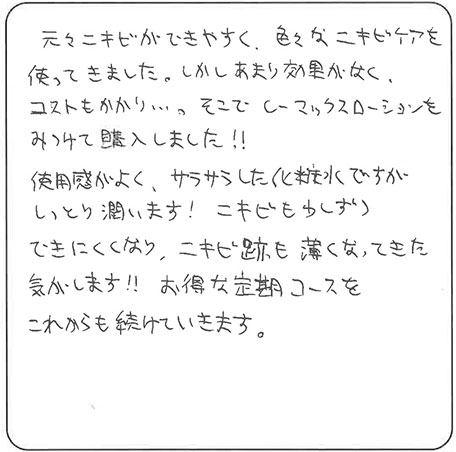 元々ニキビができやすく、色々なニキビケアを
使ってきました。しかしあまり効果がなく、
コストもかかり…。そこでシーマックスローションを
みつけて購入しました!!
使用感がよく、サラサラした化粧水ですが
しっとり潤います! ニキビも少しずつ
できにくくなり、ニキビ跡も薄くなってきた
気がします!! お得な定期コースを
これからも続けていきます。